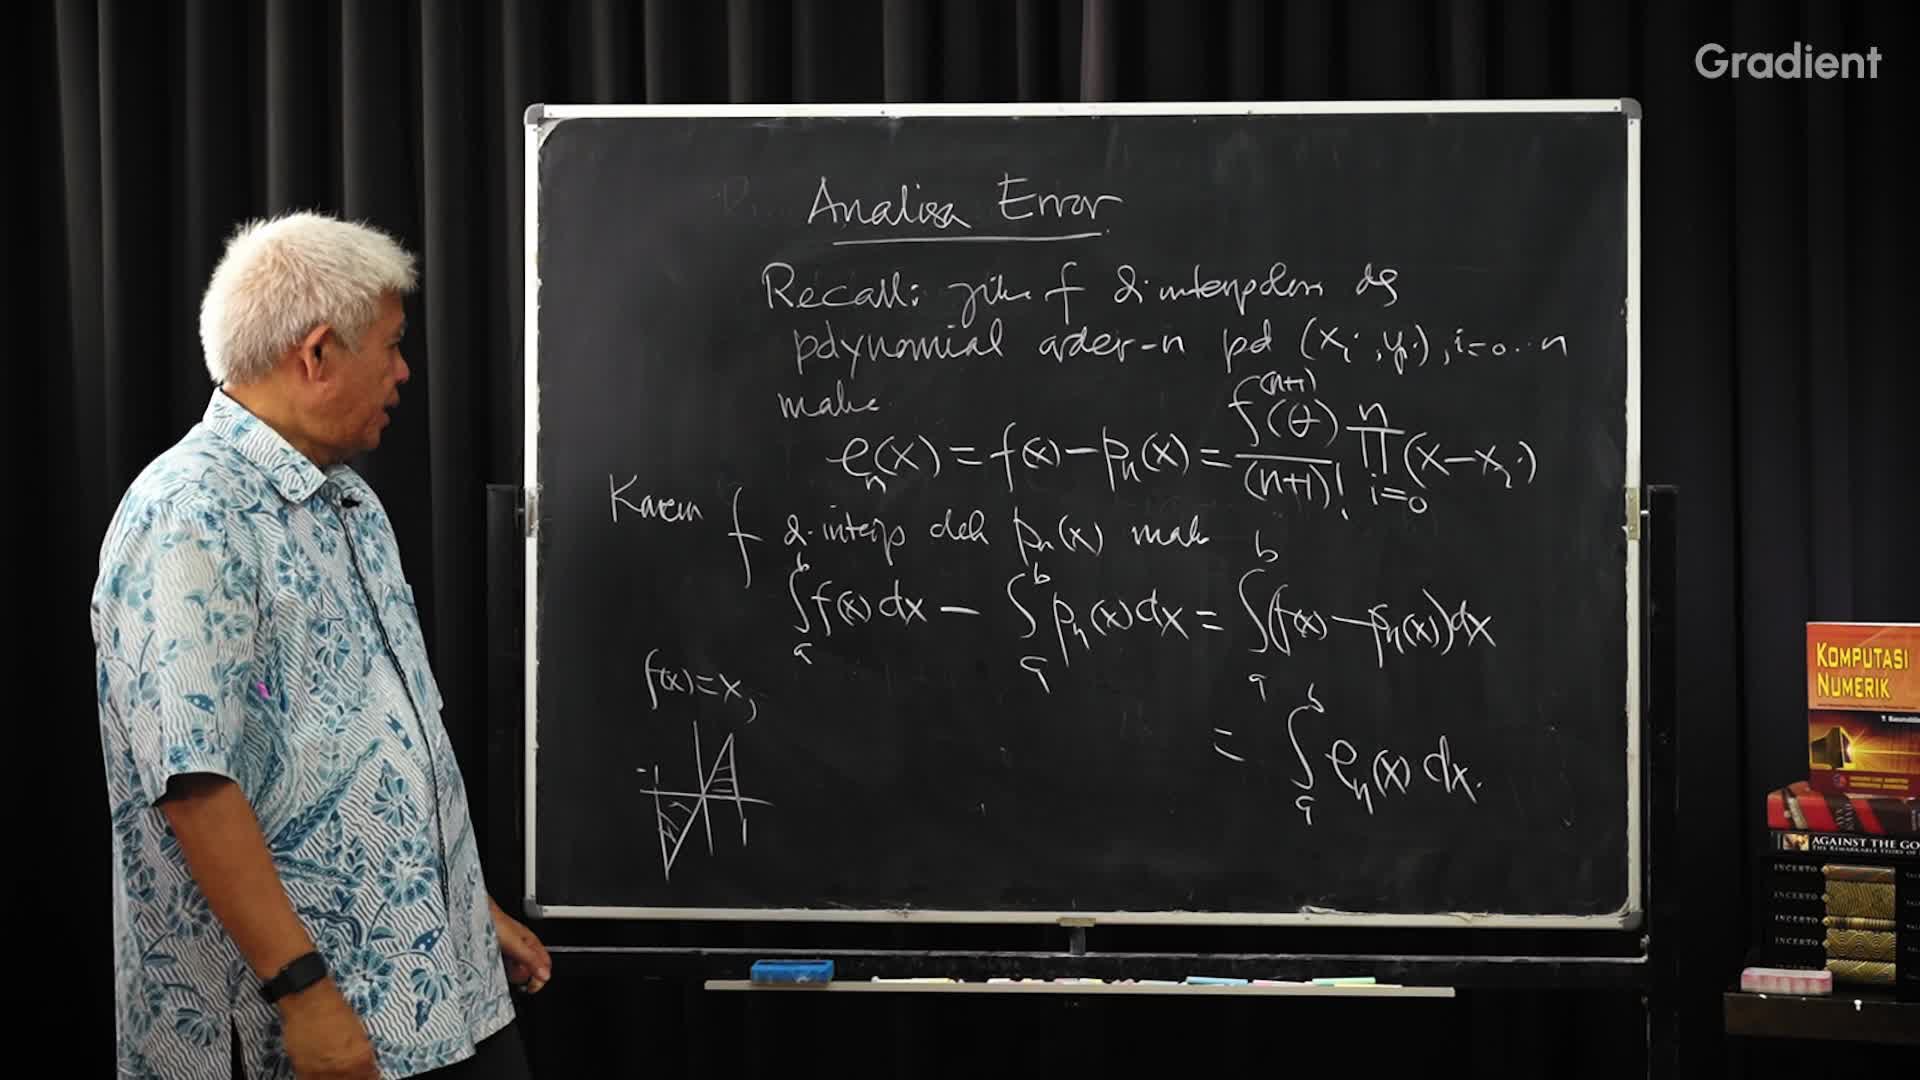 Gradient
Analisa Error
Recall: jika f diinterpolasi dg
polynomial order-n pd (xᵢ, yᵢ), i=0...n
maka
eₙ(x) = f(x) − pₙ(x) = f⁽ⁿ⁺¹⁾(θ)/(n+1)! ∏ᵢ₌₀ⁿ (x−xᵢ)
Karena f di-interp oleh pₙ(x) maka
∫ₐᵇ f(x) dx − ∫ₐᵇ pₙ(x) dx = ∫ₐᵇ (f(x) − pₙ(x)) dx
= ∫ₐᵇ eₙ(x) dx.
f(x) = x,
-1
1
KOMPUTASI
NUMERIK
AGAINST THE GO
INCERTO
INCERTO
INCERTO
INCERTO